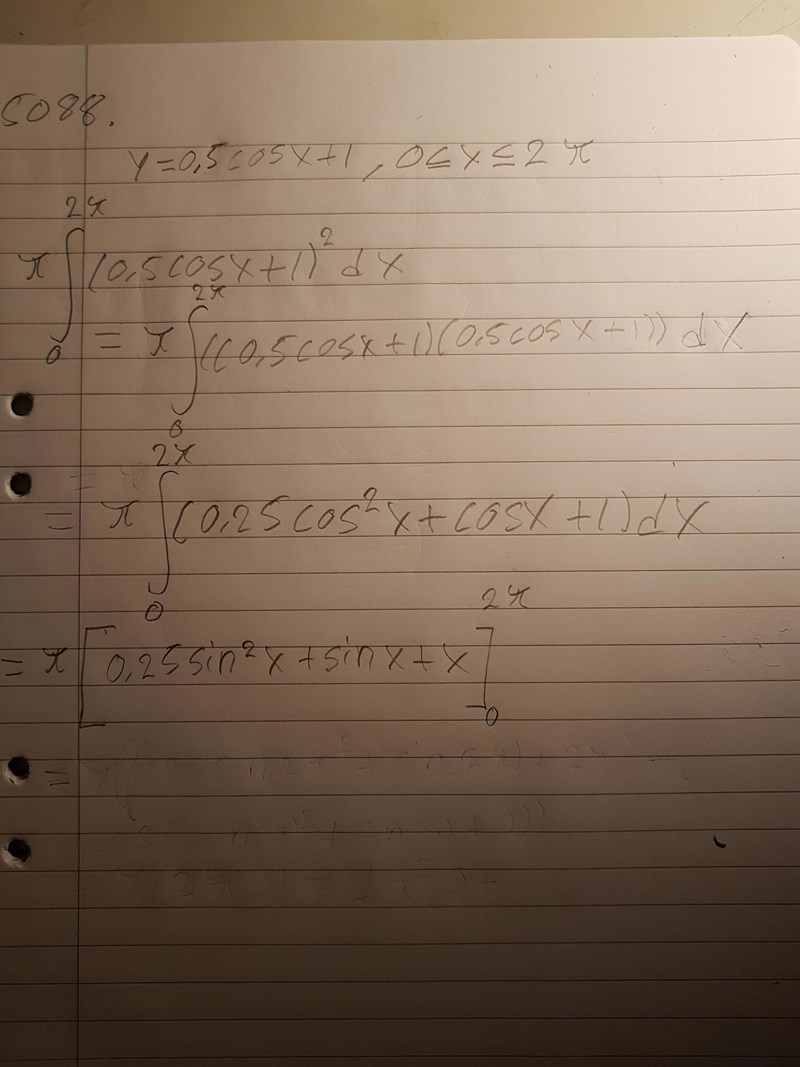 5088.
y=0,5cosx+1, 0≤x≤2π
π∫₀^2π (0,5cosx+1)² dx
= π∫₀^2π ((0,5cosx+1)(0,5cosx+1)) dx
= π∫₀^2π (0,25cos²x+cosx+1)dx
= π[0,25sin²x+sinx+x]₀^2π
=